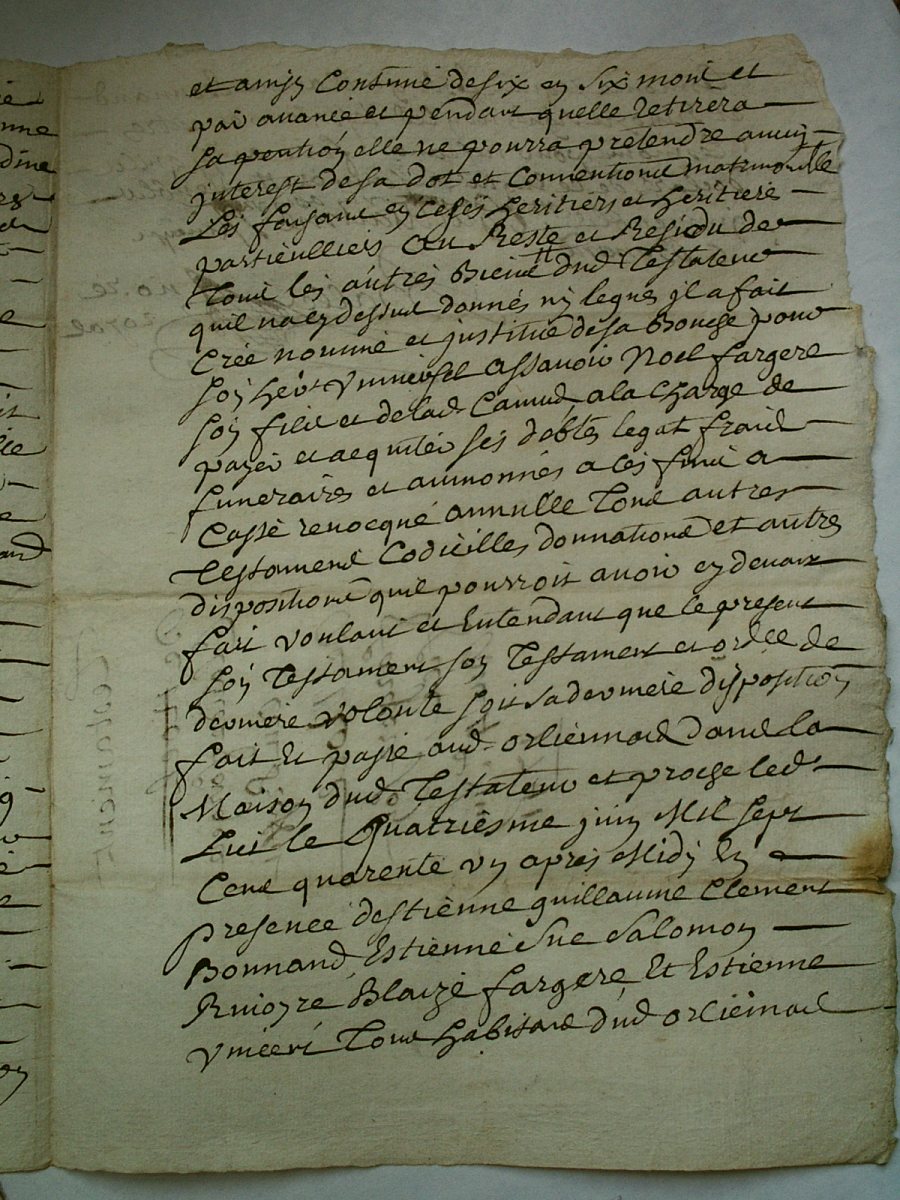 et ainsy Continué de six en six mois et
par avance et pendant quelle retirera
sa pention elle ne pourra pretendre aucun
interest de sa dot et Conventions matrimonialle
Les faisant en ce ses heritiers et heritiere
particulliers Au Reste et Residu de
Tous les autres Biens dud Testateur
quil na cy dessus donnés ny legués jl a fait
Crée nommé et justitué de sa Bouche pour
son her universel assavoir Noel fargere
son fils et de lad Camus a la charge de
payer et acquiter ses debtes legat frais
funeraires et aumonnes a ces fins a
Cassé revocqué annullé Tous autres
Testaments Codicilles donnations et autres
dispositions quil pourroit avoir cy devant
fait voulant et Entendant que le present
son Testament soy Testament et orde de
derniere volonté soit sa derniere disposition
fait Et passé aud orliennas dans la
Maison dud Testateur et proche led
Lieu le quatriesme juin Mil sept
Cens quarente un apres Midy En
presence destienne guillaume Clement
Bonnand Estienne Salomon
Blaize fargere Et Estienne
Tous habitans dud orliennas